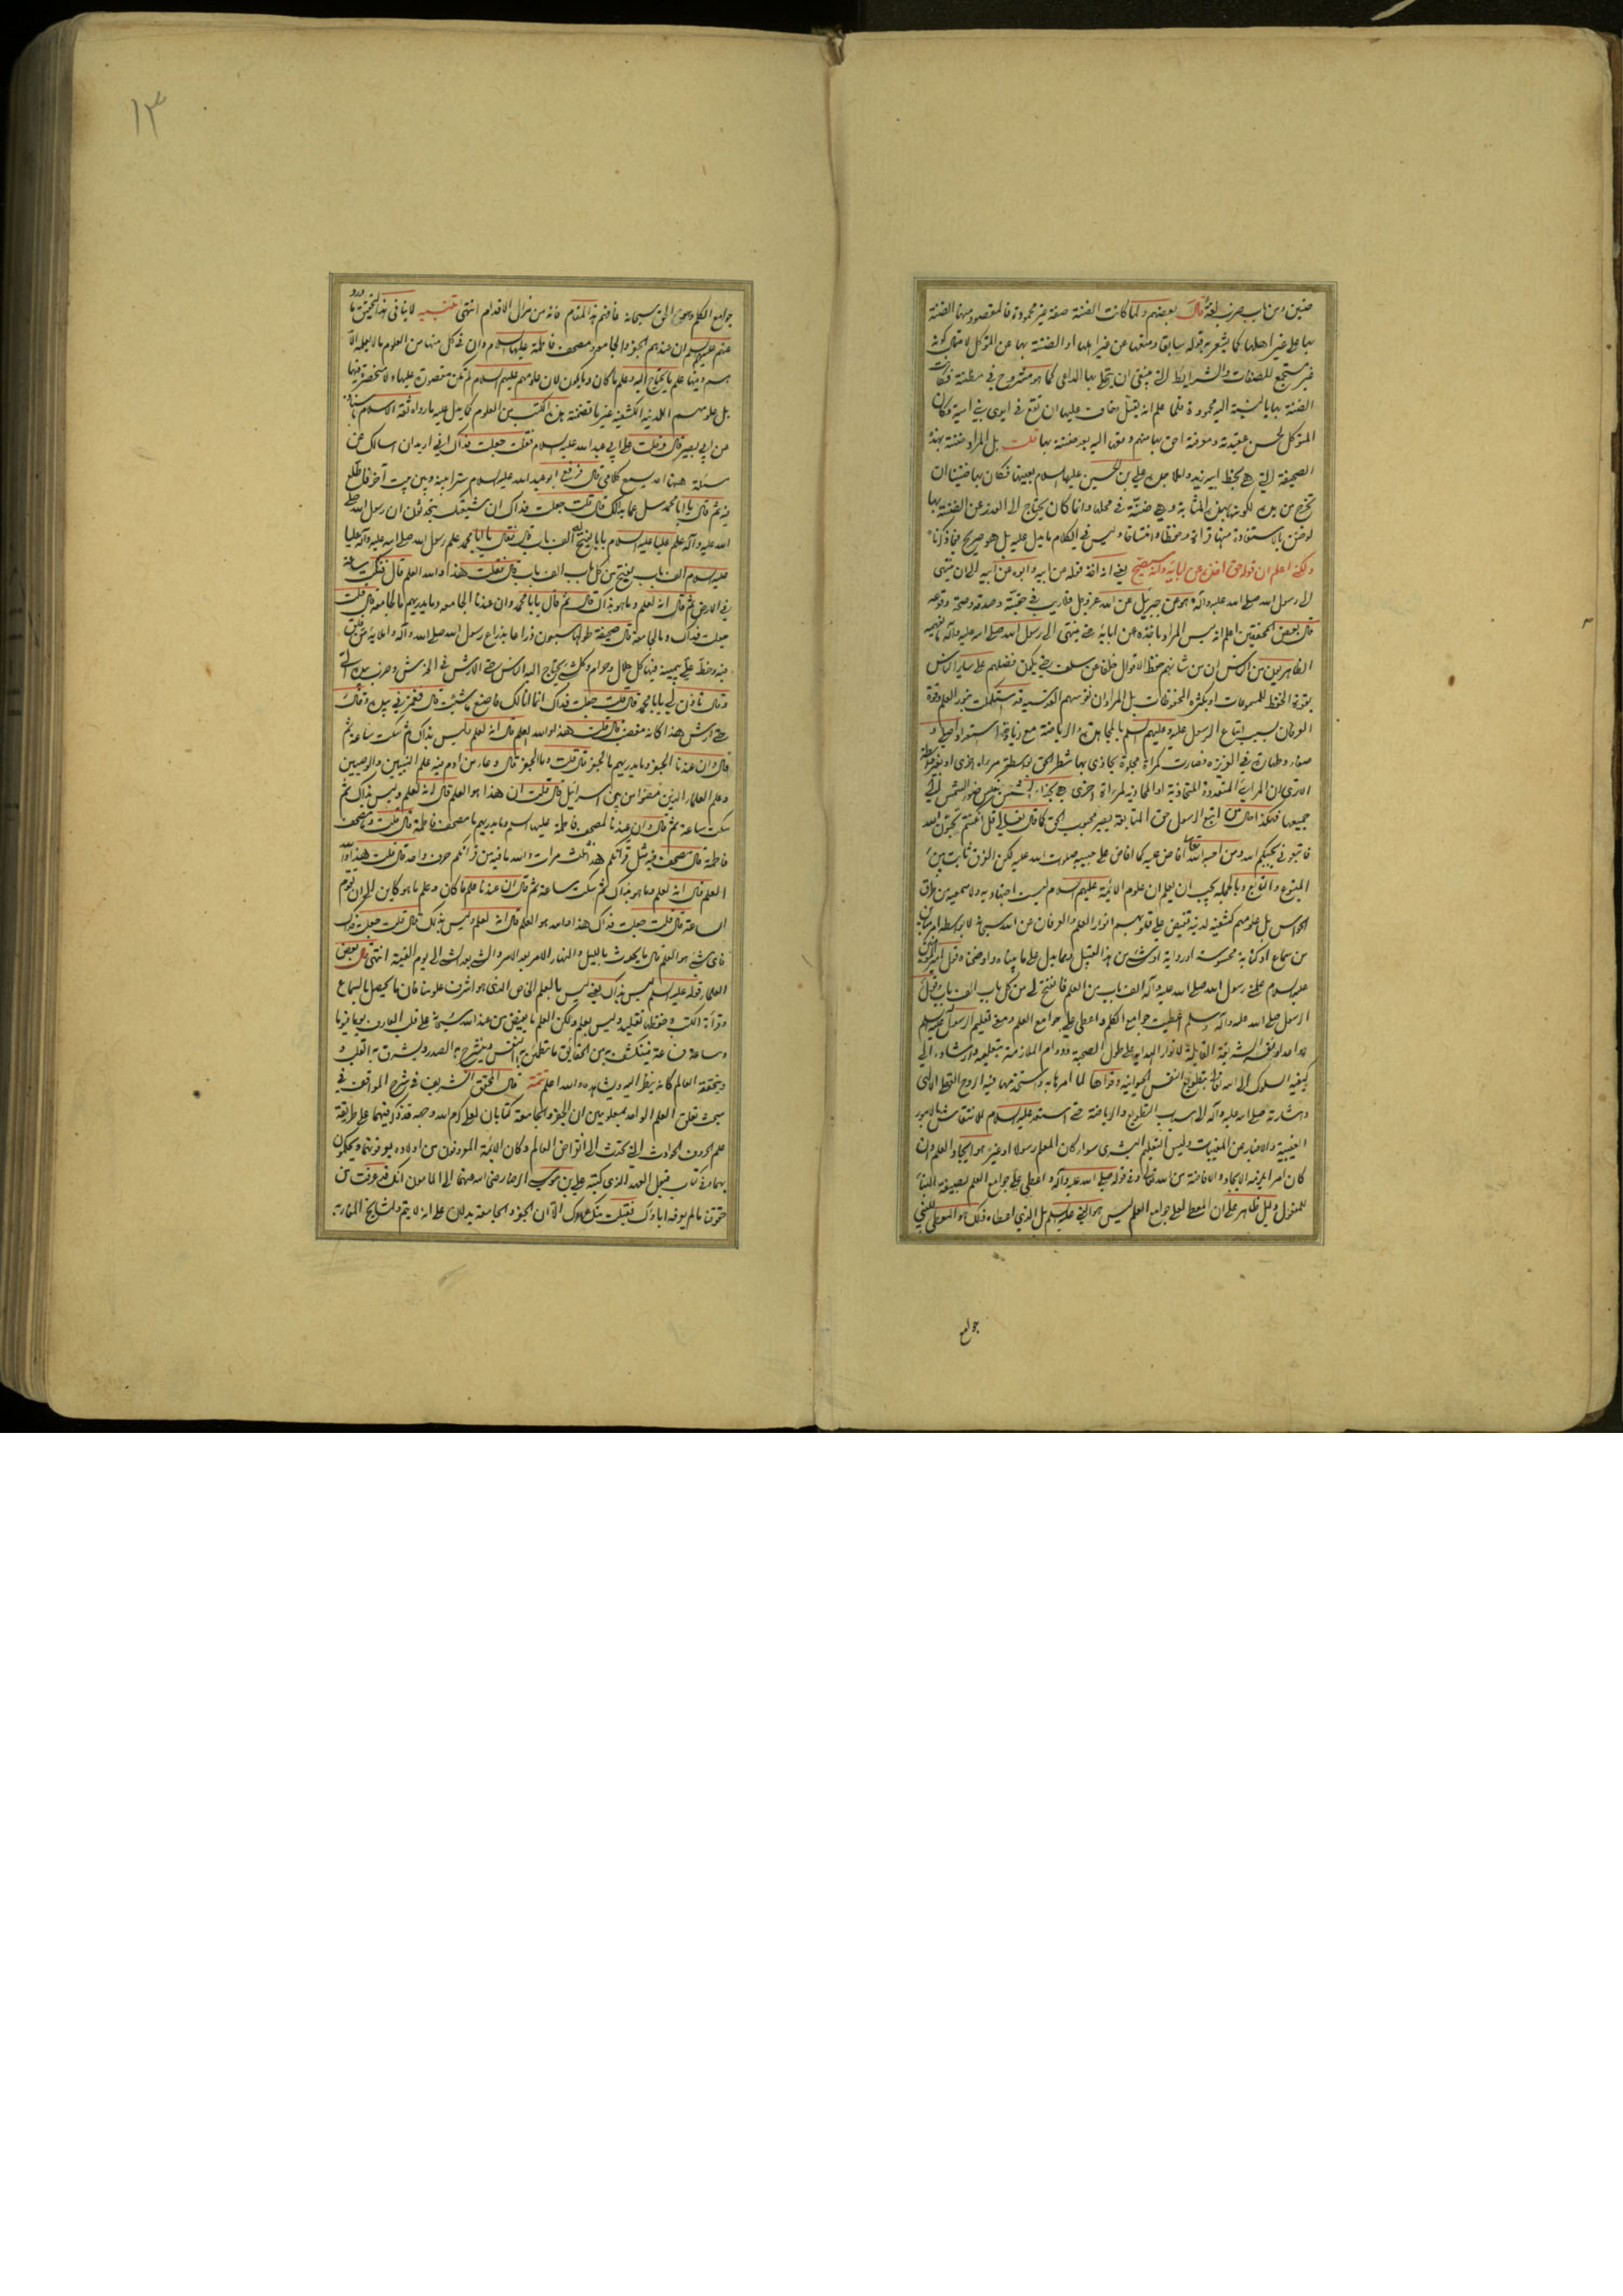 ضنين ومن باب ضرب لغة قال بعضهم ولما كانت الضنة صفة غير محمودة فالمقصود منها الضنة
بها على غير اهلها كما يشعر به قوله سابقا ومنعها عن غير اهلها او الضنة بها عن المتوكل لا مثال كونه
غير مستجمع للصفات والشرايط التي ينبغي ان يتحلى بها الداعي كما هو مشروح في مظنته فكانت
الضنة بها بالنسبة اليه محمودة فلما علم انه يقتل خاف عليها ان تقع في ايدي بني امية وكان
المتوكل لحسن عقيدته ومعرفته احق بها منهم دفعها اليه بعد ضنته بها قلت بل المراد ضنته بهذه
الصحيفة التي هي بخط ابيه زيد واملاء جده علي بن الحسين عليهما السلام بعينها فكان بها ضنينا ان
تخرج من يده لكونها بهذه المثابة وهي ضنة في محلها وانما كان يحتاج الى العذر عن الضنة بها
لو ضن بالاستفادة منها قراءة وحفظا وانتساخا وليس في الكلام ما يدل عليه بل هو صريح فيما ذكرناه
ولكني اعلم ان قوله حق اخذته عن ابائه وانه سيصح يعني انه اخذ قوله من ابيه وابوه عن ابيه الى ان ينتهي
الى رسول الله صلى الله عليه وآله وهو عن جبرئيل عن الله عز وجل فلا ريب في حقيته وصدقه وصحة وقوعه
قال بعض المحققين اعلم انه ليس المراد باخذه عن ابائه حتى ينتهي الى رسول الله صلى الله عليه وآله ما يفهمه
الظاهريون من الناس ان من شانهم حفظ الاقوال خلفا عن سلف حتى يكون فضلهم على ساير الناس
بقوة الحفظ للمسموعات او بكثرة المحفوظات بل المراد ان نفوسهم القدسية قد استكملت بنور العلم وقوة
العرفان بسبب اتباع الرسول عليه وعليهم السلام بالمجاهدة والرياضة مع زيادة استعداد اصلي و
صفاء وطهارة في الغريزة فصارت كمرآة مجلوة يحاذى بها شطر الحق بواسطة مرآة اخرى او بغير واسطة
الا ترى ان المرايا المتعددة المتحاذية او المحاذية لمرآة اخرى هي بحذاء الشمس ينعكس ضوء الشمس الى
جميعها فهكذا حال من اتبع الرسول حق المتابعة يصير محبوب الحق كما قال تعالى قل ان كنتم تحبون الله
فاتبعوني يحببكم الله ومن احبه الله تعالى افاض عليه كما افاض على حبيبه صلوات الله عليه لكن الفرق ثابت بين
المتبوع والتوابع وبالجملة يجب ان يعلم ان علوم الائمة عليهم السلام ليست اجتهادية ولا سمعية من طرق
الحواس بل علومهم كشفية لدنية تفيض على قلوبهم انوار العلم والعرفان من الله سبحانه لا بواسطة امر مباين
من سماع او كتابة محسوسة او رواية او شيء من هذا القبيل ومما يدل على ما بيناه واوضحناه قول امير المؤمنين
عليه السلام علمني رسول الله صلى الله عليه وآله الف باب من العلم فانفتح لي من كل باب الف باب وقول
الرسول صلى الله عليه وآله وسلم اعطيت جوامع الكلم واعطي علي جوامع العلم ومعنى تعليم الرسول عليه السلم
هو اعداد نفسه الشريفة القابلة لانوار الهداية على طول الصحبة ودوام الملازمة بتعليمه وارشاده الى
كيفية السلوك الى الله تعالى بتطويع النفس الحيوانية وقواها لما امرها به واستخدمها فيه الروح العقلي الالهي
واشارته صلى الله عليه وآله الى اسباب التطويع والرياضة حتى استعد عليه السلام للانتقاش بالامور
الغيبية والاخبار عن المغيبات وليس التعليم البشري سواء كان المعلم رسولا او غيره هو ايجاد العلم وان
كان امرا يلزمه الايجاد والافاضة من الله تعالى وفي قوله صلى الله عليه وآله واعطي علي جوامع العلم بصيغة البناء
للمفعول دليل ظاهر على ان المعطي لعلي جوامع العلم ليس هو النبي عليه السلام بل الذي اعطاه ذلك هو المعطي للنبي
جوامع
١٣
جوامع الكلم وهو الحق سبحانه فافهم هذا المقام فانه من مزال الاقدام انتهى تنبيه لا ينافي هذا التحقيق ما ورد
عنهم عليهم السلم ان عندهم الجفر والجامعة ومصحف فاطمة عليها السلام وان في كل منها من العلوم ما لا يعلمه الا
هم وفيها علم ما يحتاج اليه وعلم ما كان وما يكون لان علومهم عليهم السلام لم تكن مقصورة عليها ولا منحصرة فيها
بل علومهم اللدنية الكشفية غير ما تضمنته هذه الكتب من العلوم كما يدل عليه ما رواه ثقة الاسلام باسناده
عن ابي بصير قال دخلت على ابي عبد الله عليه السلام فقلت جعلت فداك اني اريد ان اسالك عن
مسئلة ههنا احد يسمع كلامي قال فرفع ابو عبد الله عليه السلام سترا بينه وبين بيت آخر فاطلع
فيه ثم قال يا ابا محمد سل عما بدا لك قال قلت جعلت فداك ان شيعتك يتحدثون ان رسول الله صلى
الله عليه وآله علم عليا عليه السلام بابا يفتح له الف باب قال فقال يا ابا محمد علم رسول الله صلى الله عليه وآله عليا
عليه سلام الف باب يفتح من كل باب الف باب قال فقلت هذا والله العلم قال فنكت ساعة
في الارض ثم قال انه لعلم وما هو بذاك قال ثم قال يا ابا محمد وان عندنا الجامعة وما يدريهم ما الجامعة قال قلت
جعلت فداك وما الجامعة قال صحيفة طولها سبعون ذراعا بذراع رسول الله صلى الله وآله واملائه من فلق
فيه وخط علي بيمينه فيها كل حلال وحرام وكل شيء يحتاج اليه الناس حتى الارش في الخدش وضرب بيده الي
وقال تاذن لي يا ابا محمد قال قلت جعلت فداك انما انا لك فاصنع ما شئت قال فغمزني بيده وقال
حتى ارش هذا كانه مغضب قال قلت هذا والله العلم قال انه لعلم وليس بذاك ثم سكت ساعة ثم
قال وان عندنا الجفر وما يدريهم ما الجفر قال قلت وما الجفر قال وعاء من ادم فيه علم النبيين والوصيين
وعلم العلماء الذين مضوا من بني اسرائيل قال قلت ان هذا هو العلم قال انه لعلم وليس بذاك ثم
سكت ساعة ثم قال وان عندنا لمصحف فاطمة عليها السلم وما يدريهم ما مصحف فاطمة قال قلت وما مصحف
فاطمة قال مصحف فيه مثل قرآنكم هذا ثلث مرات والله ما فيه من قرآنكم حرف واحد قال قلت هذا والله
العلم قال انه لعلم وما هو بذاك ثم سكت ساعة ثم قال ان عندنا علم ما كان وعلم ما هو كاين الى ان يقوم
الساعة قال قلت جعلت فداك هذا والله هو العلم قال انه لعلم وليس بذلك قال قلت جعلت فداك
فاي شيء هو العلم قال ما يحدث بالليل والنهار الامر بعد الامر والشيء بعد الشيء الى يوم القيمة انتهى قال بعض
العلماء قوله عليه السلم ليس بذاك يعني ليس بالعلم الخاص الذي هو اشرف علومنا فان ما يحصل بالسماع
وقراءة الكتب وحفظها تقليد وليس بعلم ولكن العلم ما يفيض من عند الله سبحانه على قلب العارف يوما فيوما
وساعة فساعة فينكشف به من الحقايق ما تطمئن به النفس وينشرح به الصدر ويشرق به القلب و
ويتحققه العالم كانه ينظر اليه ويشاهده والله اعلم تتمة قال المحقق الشريف في شرح المواقف في
مبحث تعلق العلم الواحد بمعلومين ان الجفر والجامعة كتابان لعلي كرم الله وجهه قد ذكر فيهما على طريقة
علم الحروف الحوادث التي تحدث الى انقراض العالم وكان الائمة المعروفون من اولاده يعرفونهما ويحكمون
بهما وفي كتاب قبول العهد الذي كتبه علي بن موسى الرضا رضي الله عنهما الى المامون انك قد عرفت من
حقوقنا ما لم يعرفه اباؤك فقبلت منك عهدك الا ان الجفر والجامعة يدلان على انه لا يتم ولمشايخ المغاربة